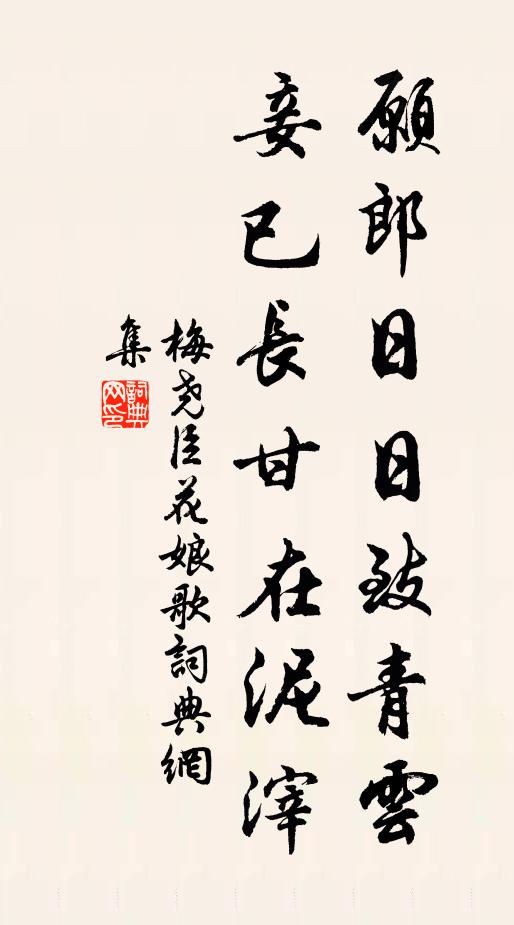 願郎日日致青雲
妾已長甘在泥滓
梅尧臣花娘歌詞典網
集
詞典
网印